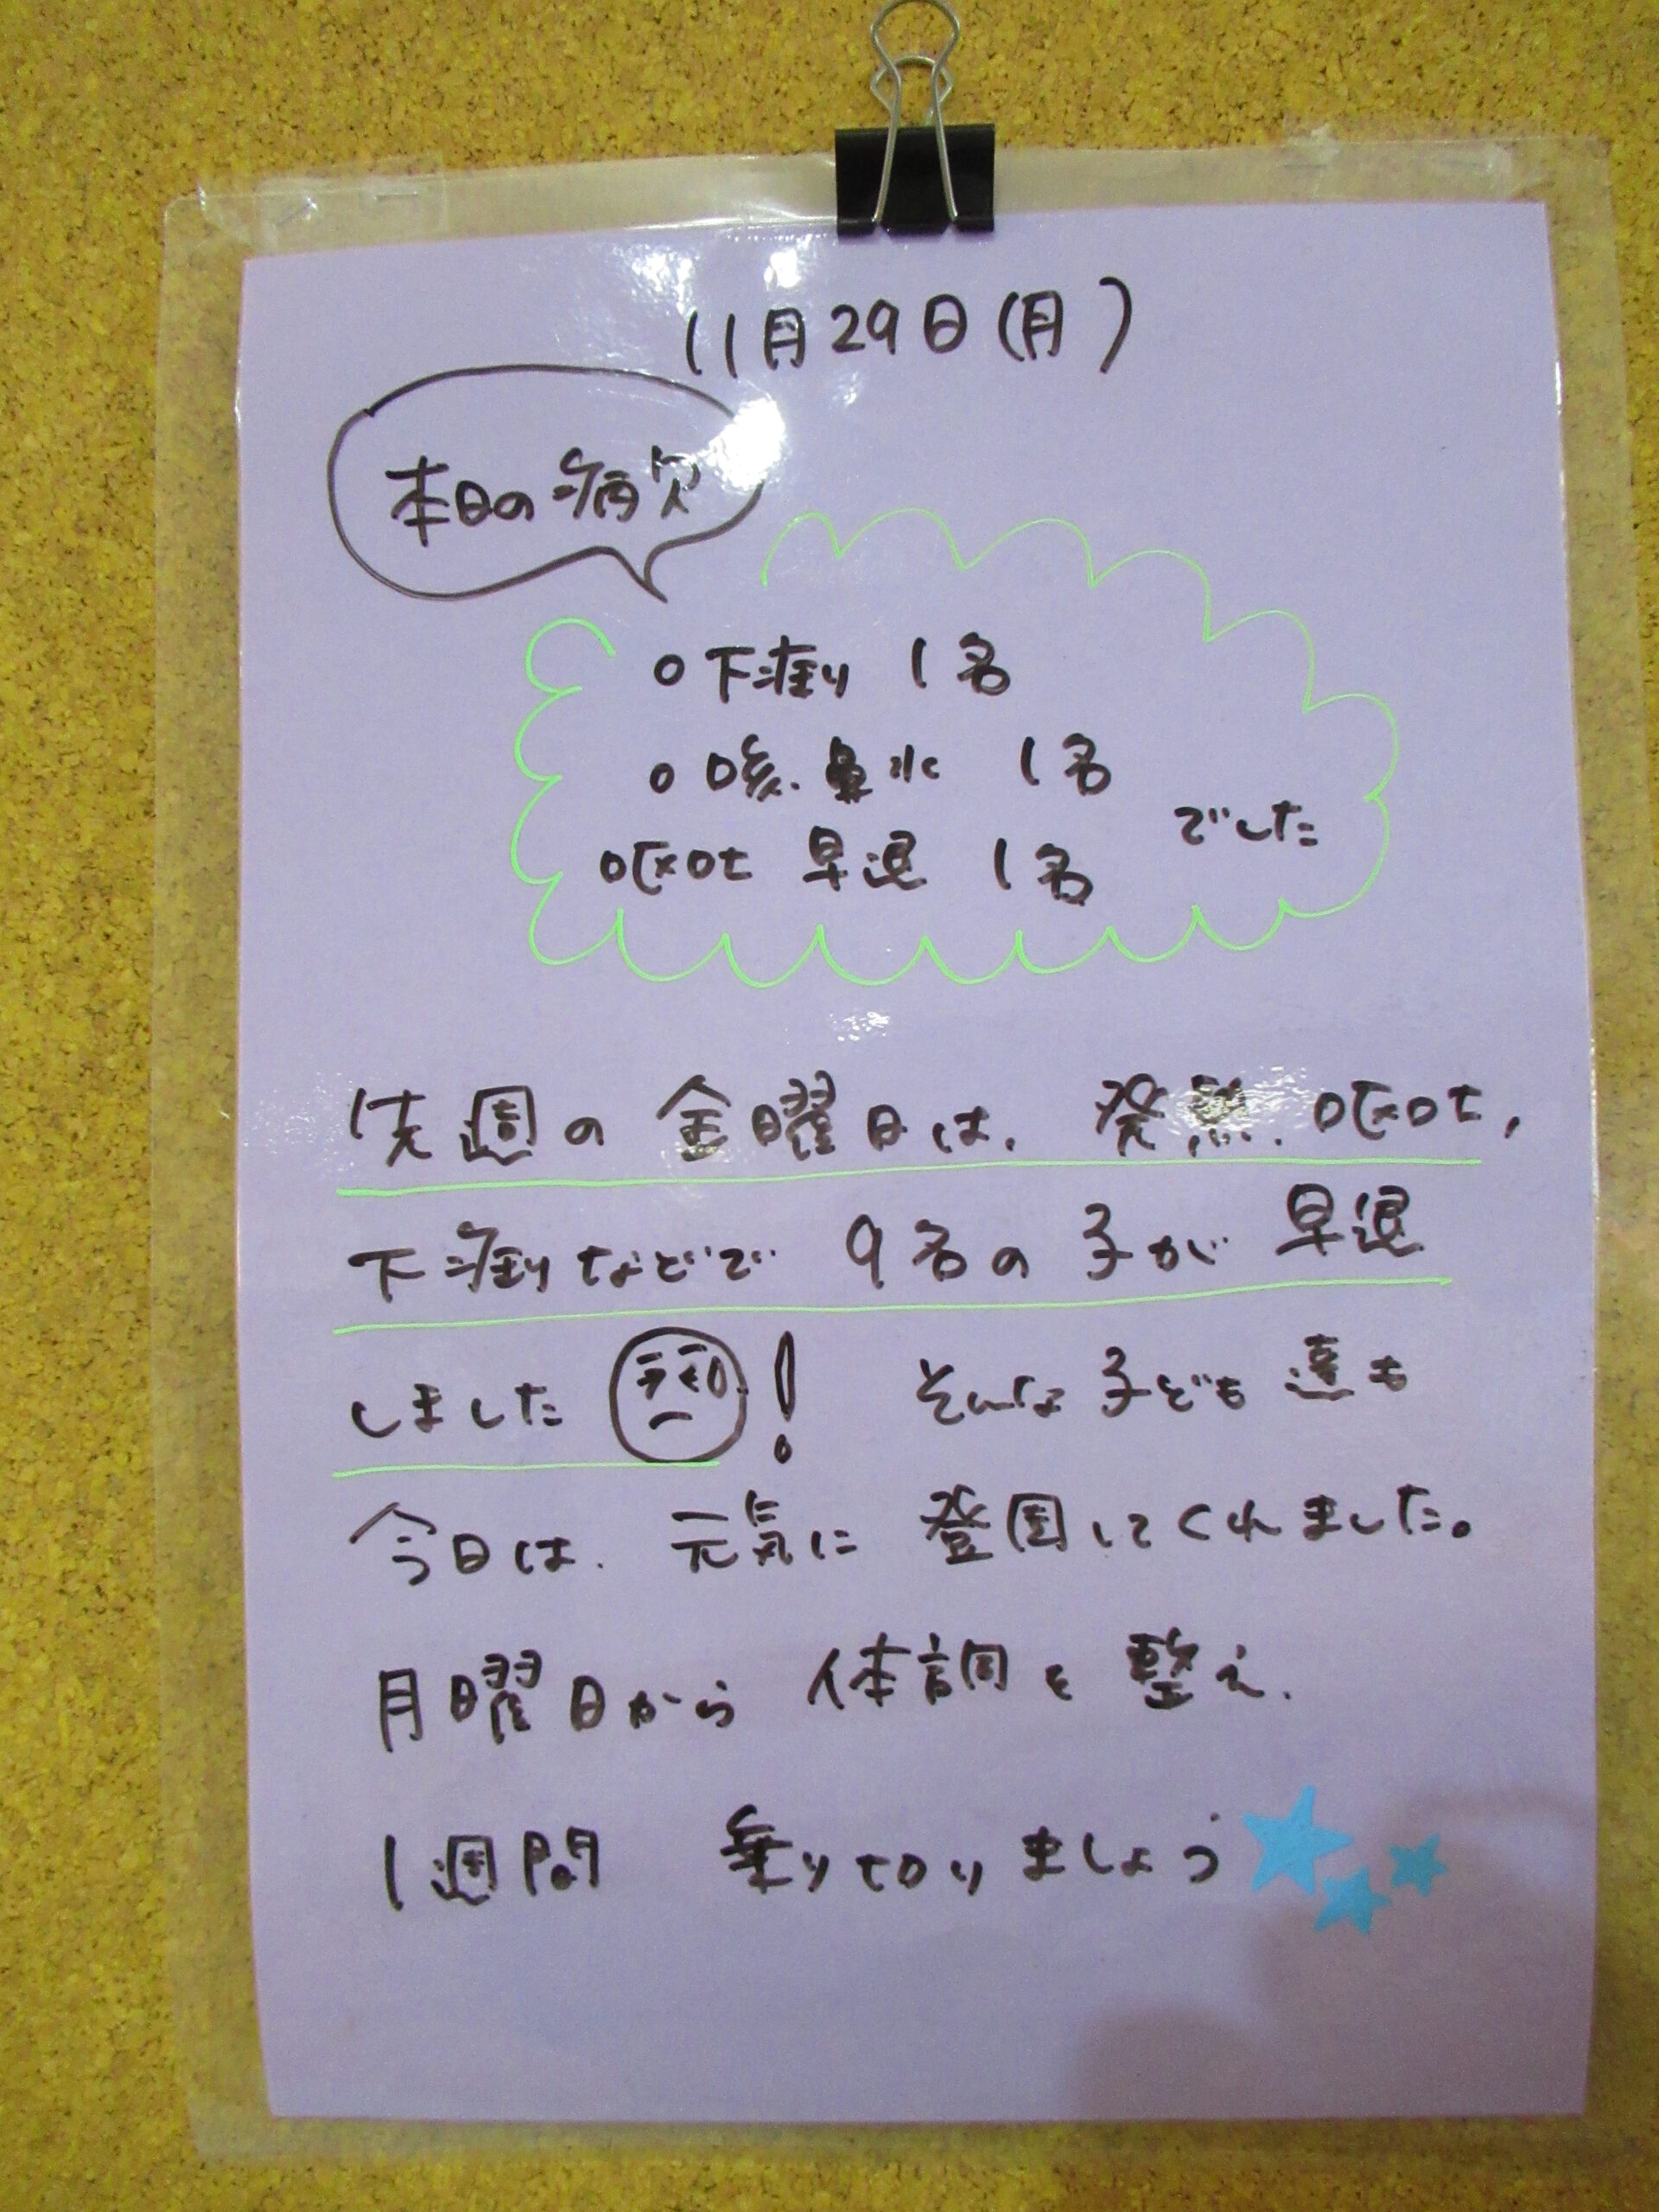 11月29日(月)
本日の病欠
○下痢り 1名
○咳、鼻水 1名
○嘔吐 早退 1名
でした
先週の金曜日は、発熱、嘔吐、
下痢りなどで 9名の子が早退
しました ! そんな子ども達も
今日は、元気に登園してくれました。
月曜日から体調を整え、
1週間 乗り切りましょう